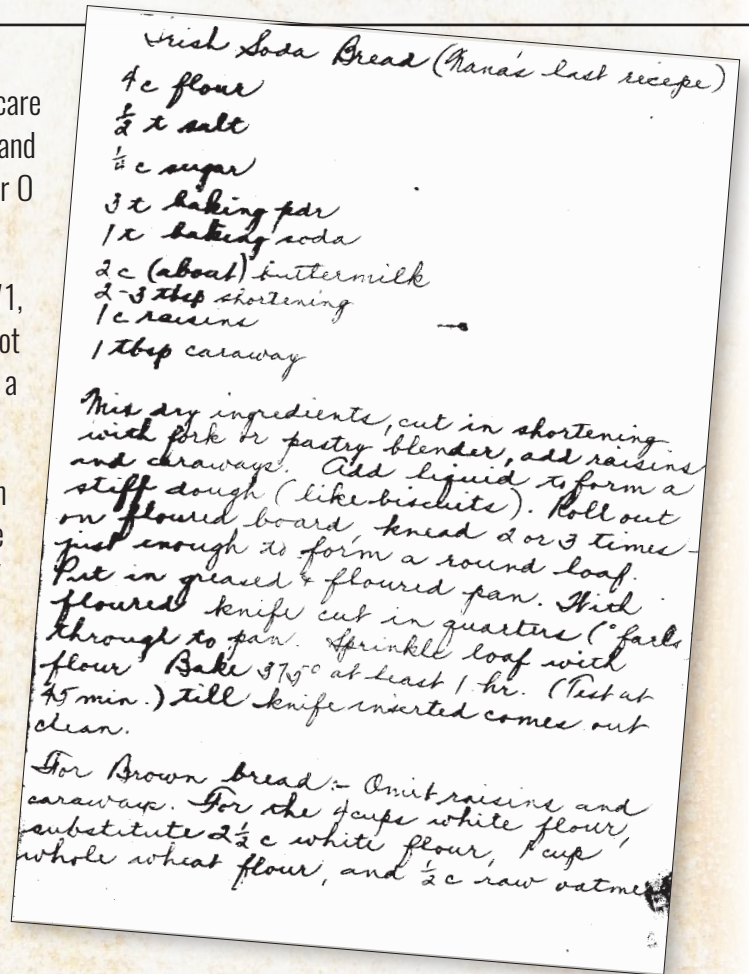 care
and
r O
71,
ot
a
n
e
Irish Soda Bread (Nana's last recepe)
4 c flour
½ t salt
¼ c sugar
3 t baking pdr
1 t baking soda
2 c (about) buttermilk
2-3 tbsp shortening
1 c raisins
1 tbsp caraway
Mix dry ingredients, cut in shortening
with fork or pastry blender, add raisins
and caraways. Add liquid to form a
stiff dough (like biscuits). Roll out
on floured board, knead 2 or 3 times -
just enough to form a round loaf.
Put in greased + floured pan. With
floured knife cut in quarters ("farls
through to pan. Sprinkle loaf with
flour Bake 375° at least 1 hr. (Test at
45 min.) till knife inserted comes out
clean.
For Brown bread:- Omit raisins and
caraways. For the 4 cups white flour,
substitute 2½ c white flour, 1 cup
whole wheat flour, and ½ c raw oatmea